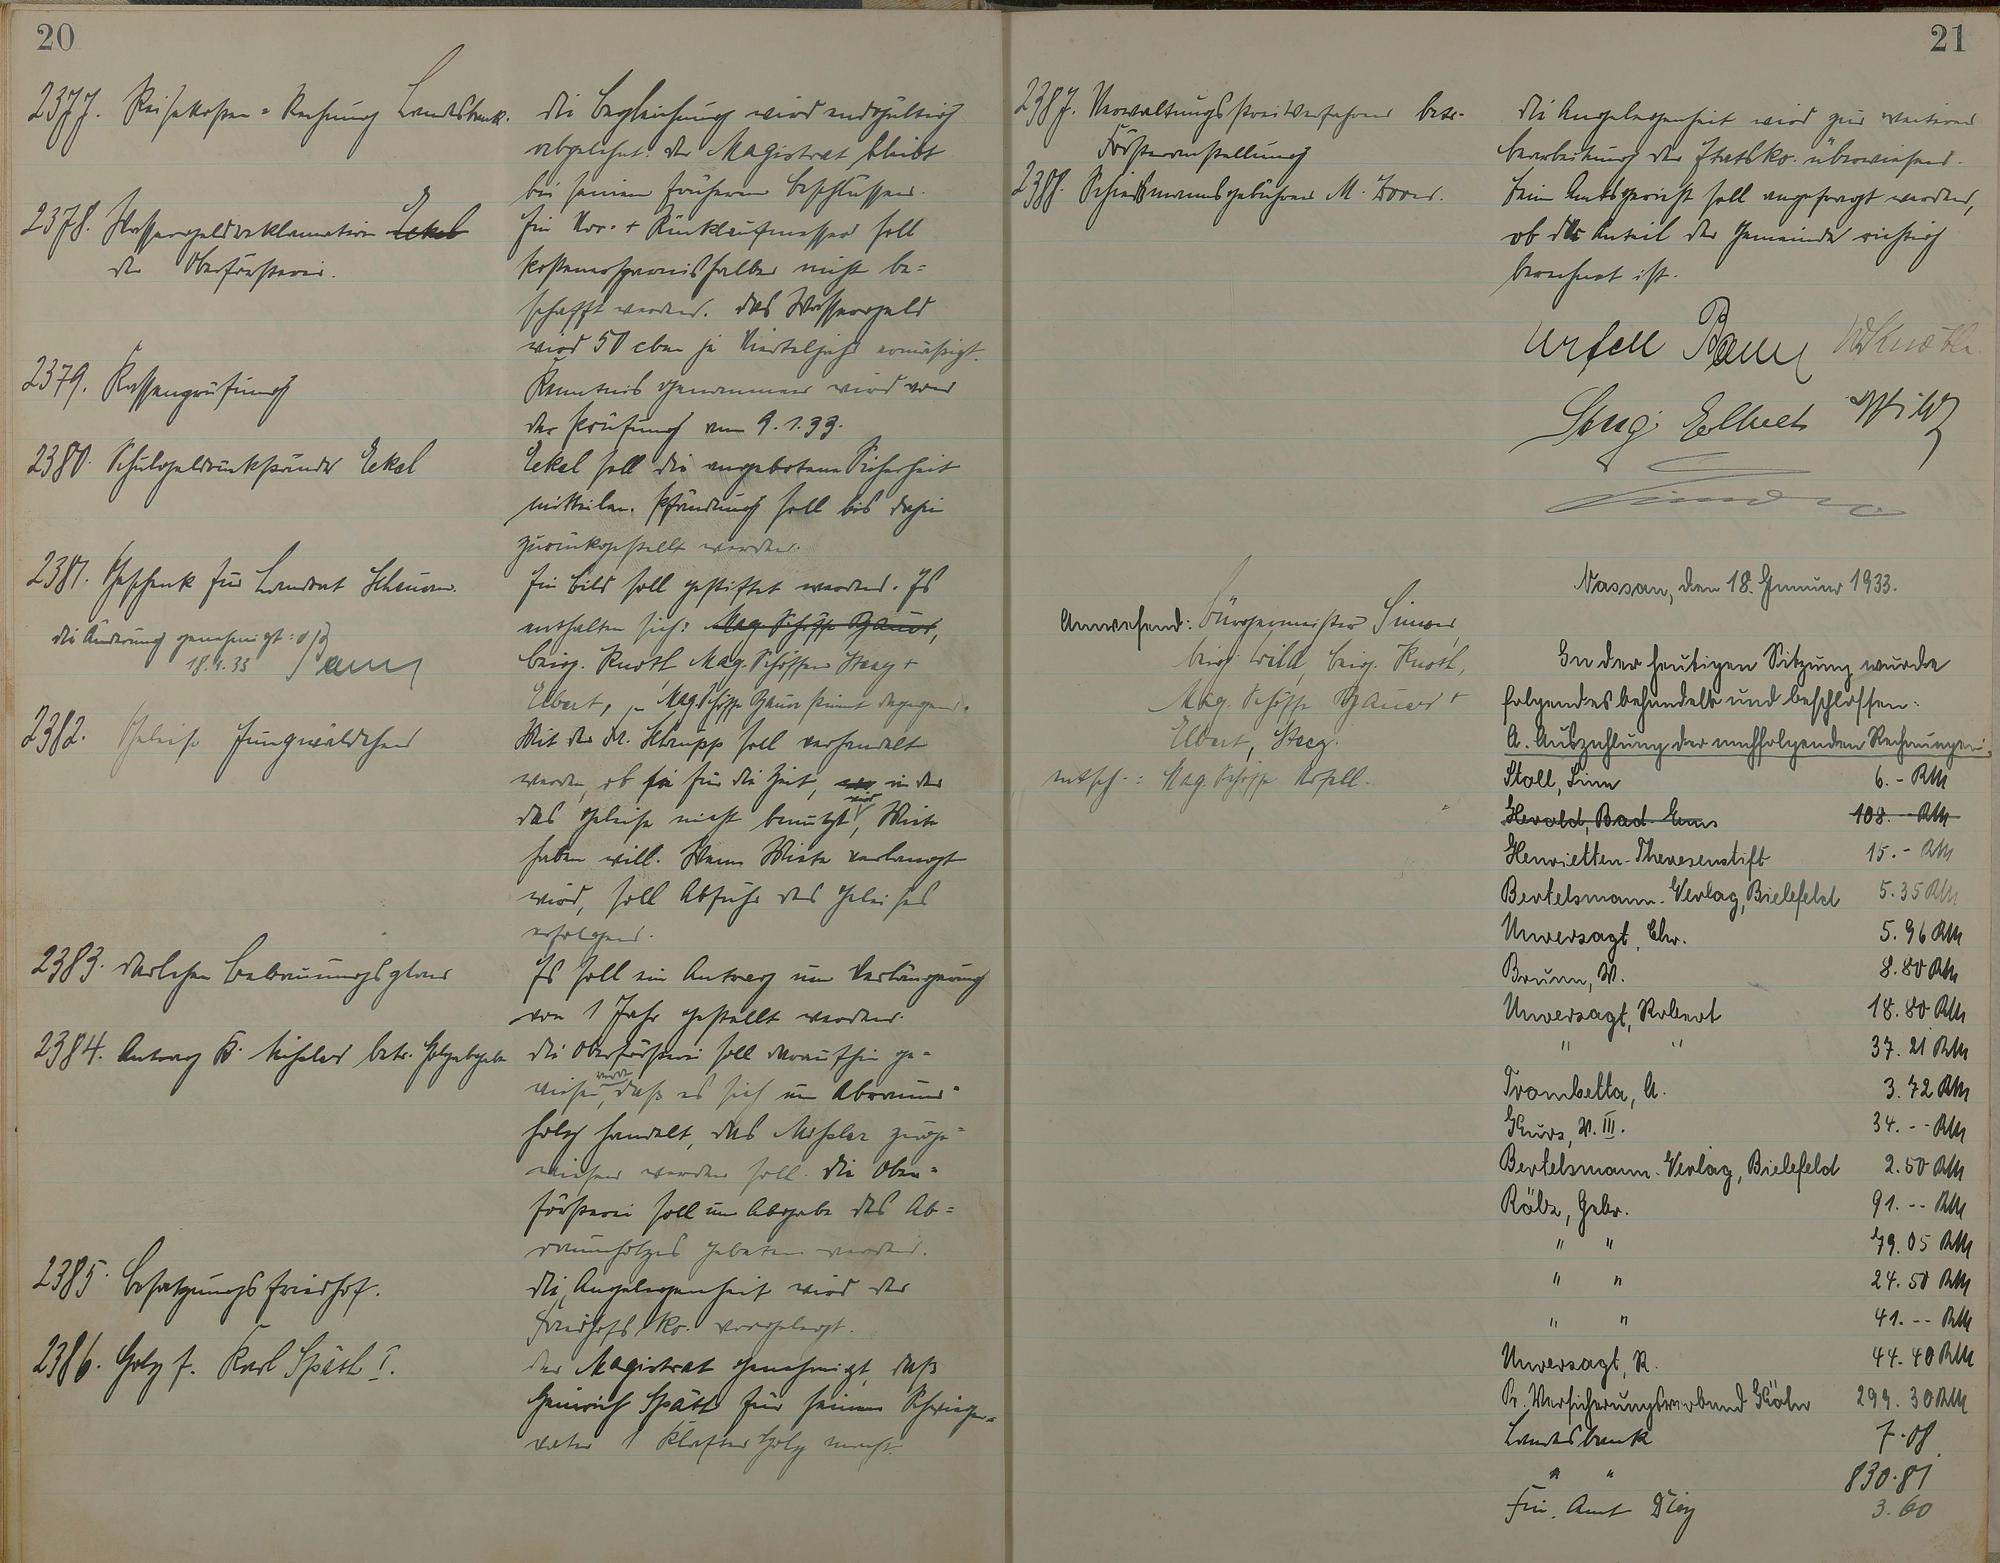 20
2377. Reisekosten-Rechnung Landesbank.
Die Begleichung wird endgültig
abgelehnt. Der Magistrat bleibt
bei seinen früheren Beschlüssen.
2378. Wassergeldreklamation Eckel
der Oberförsterei.
Ein Vor- + Rücklaufmesser soll
kostenersparnishalber nicht be-
schafft werden. Das Wassergeld
wird 50 cbm je Vierteljahr ermäßigt.
2379. Kassenprüfung
Kenntnis genommen wird von
der Prüfung vom 9.1.33.
2380. Schulgeldrückstände Eckel
Eckel soll die angebotene Sicherheit
mitteilen. Pfändung soll bis dahin
zurückgestellt werden.
2381. Geschenk für Landrat Scheuern.
die Änderung genehmigt:
18.1.33
Ein Bild soll gestiftet werden. Es
enthalten sich: Mag. Schöffe Bauer,
beig. Knoth, Mag. Schöffen Steeg +
Elbert, Mag. Schöffe Bauer stimmt dagegen.
2382. Geleise Jungwäldchen
Mit der Fa. Schrupp soll verhandelt
werden, ob sie für die Zeit, in der
das Geleise nicht benutzt wird, Miete
haben will. Wenn Miete verlangt
wird, soll Abfuhr des Geleises
erfolgen.
2383. Darlehen Bebauungsplan
Es soll ein Antrag um Verlängerung
von 1 Jahr gestellt werden.
2384. Antrag K. Mishler betr. Holzabgabe
Die Oberförsterei soll daraufhin ge-
wiesen werden, daß es sich um Abraum-
holz handelt, das Mishler zuge-
wiesen werden soll. Die Ober-
försterei soll um Abgabe des Ab-
raumholzes gebeten werden.
2385. Besatzungsfriedhof.
Die Angelegenheit wird der
Friedhofsko. vorgelegt.
2386. Holz f. Karl Späth I.
Der Magistrat genehmigt, daß
Heinrich Späth für seinen Schwieger-
vater 1 Klafter Holz macht.
21
2387. Verwaltungsstreitverfahren betr.
Försteranstellung
Die Angelegenheit wird zur weiteren
Bearbeitung der Etatsko. überwiesen.
2388. Schiedsmannsgebühren M.
Beim Amtsgericht soll angefragt werden,
ob der Anteil der Gemeinde richtig
berechnet ist.
Ursell Bauer W Knoth
Steeg Elbert Wild
Simon
Nassau, den 18. Januar 1933.
Anwesend: Bürgermeister Simon,
beig. Wild, beig. Knoth,
Mag. Schöffe Bauer +
Elbert, Steeg.
entsch.: Mag. Schöffe Ursell.
In der heutigen Sitzung wurde
folgendes behandelt und beschlossen:
A. Auszahlung der nachfolgenden Rechnungen:
Stoll, Sinn 6.- RM
Herold, Bad Ems 108.-- RM
Henrietten-Theresenstift 15.- RM
Bertelsmann-Verlag, Bielefeld 5.35 RM
Unversagt, Chr. 5.96 RM
Brunn, W. 8.80 RM
Unversagt, Robert 18.80 RM
" " 37.21 RM
Trombetta, A. 3.72 RM
Kurz, W. III. 34.-- RM
Bertelsmann-Verlag, Bielefeld 2.50 RM
Räbe, Gebr. 91.-- RM
" " 79.05 RM
" " 24.50 RM
" " 41.-- RM
Unversagt, R. 44.40 RM
R. Versicherungsverband Köln 299.30 RM
Landesbank 7.08
" " 830.81
Fin. Amt Diez 3.60